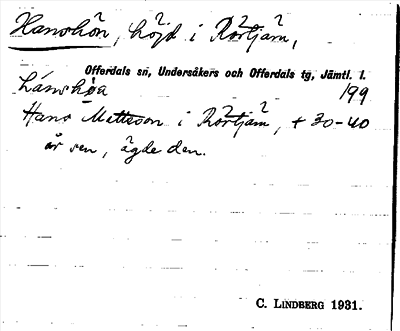 Hanshön, höjd i Rörtjärn,
Offerdals sn, Undersåkers och Offerdals tg, Jämtl. l.
199
Hans Mattsson i Rörtjärn, + 30-40
år sen, ägde den.
C. LINDBERG 1931.